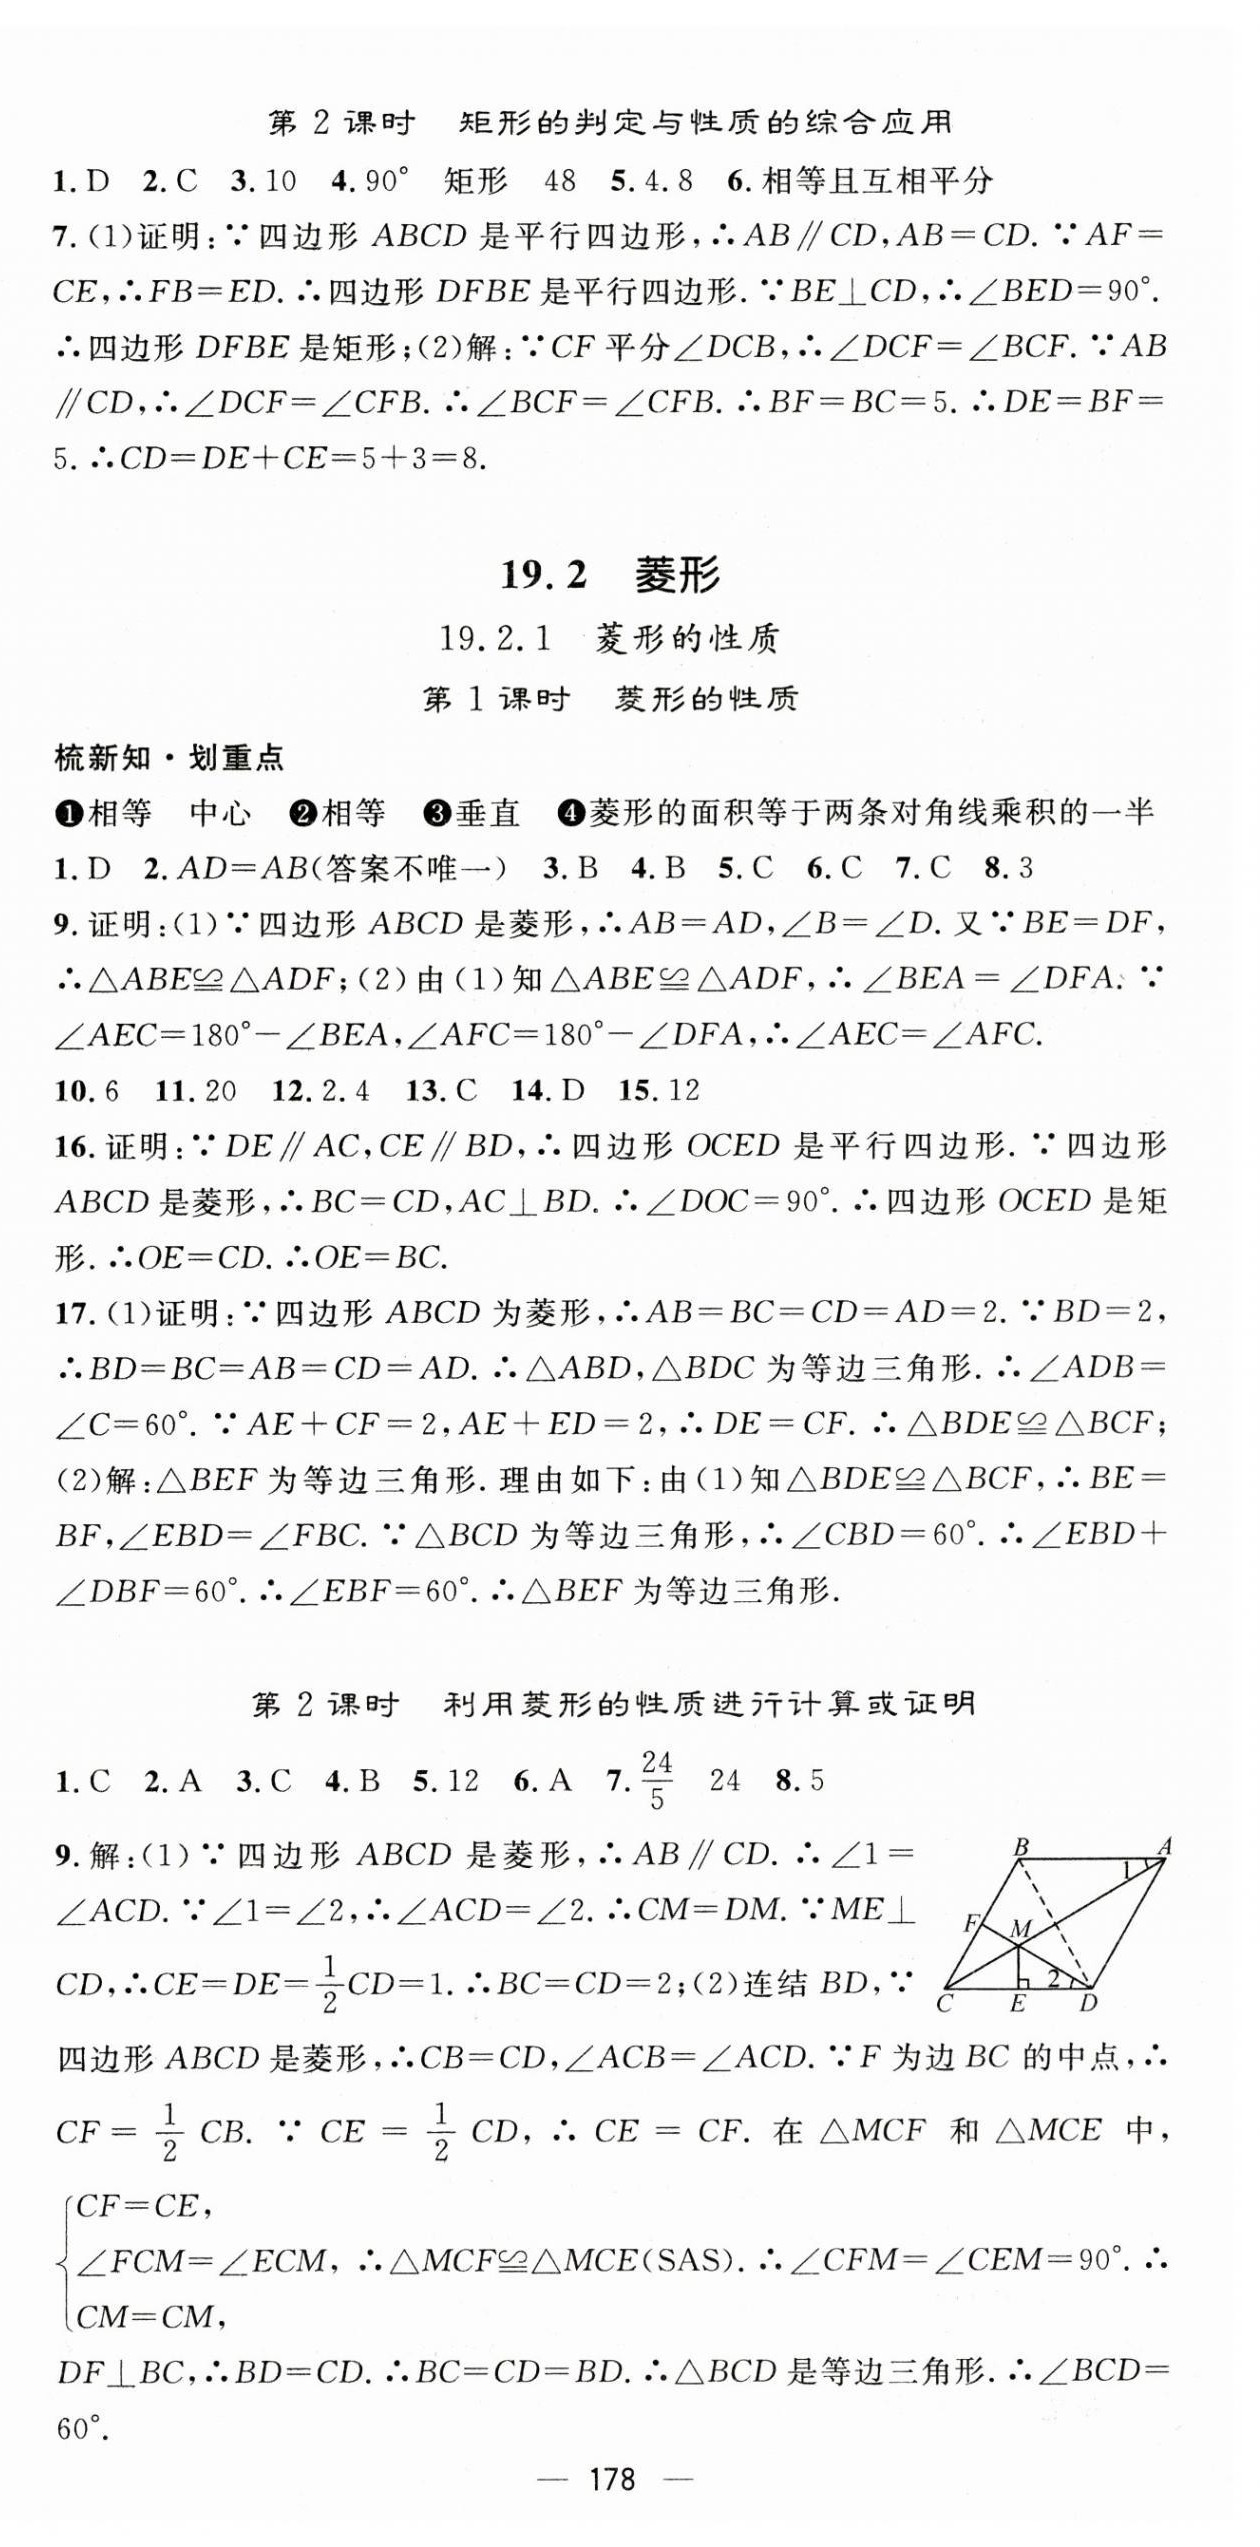 第 2 课时　矩形的判定与性质的综合应用
1. D　2. C　3. 10　4. 90°　矩形　48　5. 4.8　6. 相等且互相平分
7. (1)证明:∵四边形 ABCD 是平行四边形,∴AB∥CD,AB=CD. ∵AF=
CE,∴FB=ED. ∴四边形 DFBE 是平行四边形. ∵BE⊥CD,∴∠BED=90°.
∴四边形 DFBE 是矩形;(2)解:∵CF 平分∠DCB,∴∠DCF=∠BCF. ∵AB
∥CD,∴∠DCF=∠CFB. ∴∠BCF=∠CFB. ∴BF=BC=5. ∴DE=BF=
5. ∴CD=DE+CE=5+3=8.
19.2　菱形
19.2.1　菱形的性质
第 1 课时　菱形的性质
梳新知·划重点
❶相等　中心　❷相等　❸垂直　❹菱形的面积等于两条对角线乘积的一半
1. D　2. AD=AB(答案不唯一)　3. B　4. B　5. C　6. C　7. C　8. 3
9. 证明:(1)∵四边形 ABCD 是菱形,∴AB=AD,∠B=∠D. 又∵BE=DF,
∴△ABE≌△ADF;(2)由(1)知△ABE≌△ADF,∴∠BEA=∠DFA. ∵
∠AEC=180°-∠BEA,∠AFC=180°-∠DFA,∴∠AEC=∠AFC.
10. 6　11. 20　12. 2.4　13. C　14. D　15. 12
16. 证明:∵DE∥AC,CE∥BD,∴四边形 OCED 是平行四边形. ∵四边形
ABCD 是菱形,∴BC=CD,AC⊥BD. ∴∠DOC=90°. ∴四边形 OCED 是矩
形. ∴OE=CD. ∴OE=BC.
17. (1)证明:∵四边形 ABCD 为菱形,∴AB=BC=CD=AD=2. ∵BD=2,
∴BD=BC=AB=CD=AD. ∴△ABD,△BDC 为等边三角形. ∴∠ADB=
∠C=60°. ∵AE+CF=2,AE+ED=2,∴DE=CF. ∴△BDE≌△BCF;
(2)解:△BEF 为等边三角形. 理由如下:由(1)知△BDE≌△BCF,∴BE=
BF,∠EBD=∠FBC. ∵△BCD 为等边三角形,∴∠CBD=60°. ∴∠EBD+
∠DBF=60°. ∴∠EBF=60°. ∴△BEF 为等边三角形.
第 2 课时　利用菱形的性质进行计算或证明
1. C　2. A　3. C　4. B　5. 12　6. A　7. 24/5　24　8. 5
9. 解:(1)∵四边形 ABCD 是菱形,∴AB∥CD. ∴∠1=
∠ACD. ∵∠1=∠2,∴∠ACD=∠2. ∴CM=DM. ∵ME⊥
CD,∴CE=DE=1/2CD=1. ∴BC=CD=2;(2)连结 BD,∵
B A
1
F M
2
C E D
四边形 ABCD 是菱形,∴CB=CD,∠ACB=∠ACD. ∵F 为边 BC 的中点,∴
CF = 1/2 CB. ∵ CE = 1/2 CD, ∴ CE = CF. 在 △MCF 和 △MCE 中,
CF=CE,
∠FCM=∠ECM, ∴△MCF≌△MCE(SAS). ∴∠CFM=∠CEM=90°. ∴
CM=CM,
DF⊥BC,∴BD=CD. ∴BC=CD=BD. ∴△BCD 是等边三角形. ∴∠BCD=
60°.
— 178 —